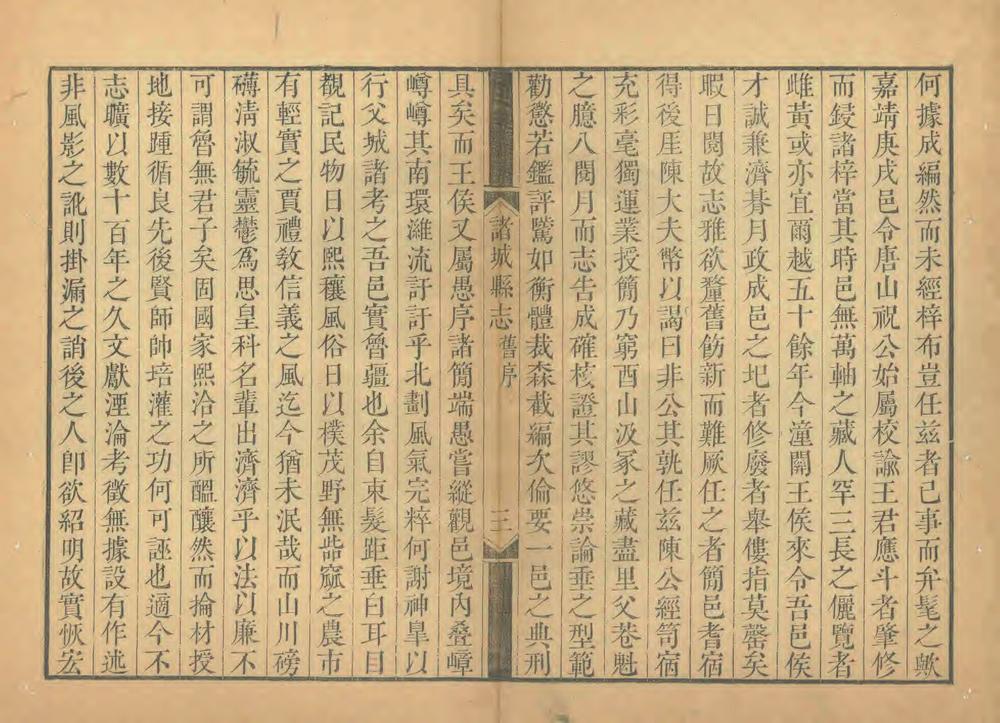 何據成編然而未經梓布豈任兹者已事而弁髦之歟
嘉靖庚戌邑令唐山祝公始屬校諭王君應斗者肇修
而鋟諸梓當其時邑無萬軸之藏人罕三長之儷覽者
雌黃或亦宜爾越五十餘年今潼關王侯來令吾邑侯
才誠兼濟朞月政成邑之圮者修廢者舉僂指莫罄矣
暇日閱故志雅欲釐舊飭新而難厥任之者簡邑耆宿
得後厓陳大夫幣以謁曰非公其孰任兹陳公經笥宿
充彩毫獨運業授簡乃窮酉山汲冢之藏盡里父巷魁
之臆八閱月而志告成確核證其謬悠崇論垂之型範
勸懲若鑑評騭如衡體裁森截編次倫要一邑之典刑
諸城縣志 舊序 三
具矣而王侯又屬愚序諸簡端愚嘗縱觀邑境內叠嶂
嶟嶟其南環濰流訏訏乎北劃風氣完粹何謝神臯以
行父城諸考之吾邑實魯疆也余自束髮距垂白耳目
覩記民物日以熙穰風俗日以樸茂野無呰窳之農市
有輕實之賈禮敎信義之風迄今猶未泯哉而山川磅
礴淸淑毓靈鬱爲思皇科名輩出濟濟乎以法以廉不
可謂魯無君子矣固國家熙洽之所醞釀然而掄材授
地接踵循良先後賢師帥培灌之功何可誣也適今不
志曠以數十百年之久文獻湮淪考徵無據設有作逃
非風影之訛則掛漏之誚後之人卽欲紹明故實恢宏